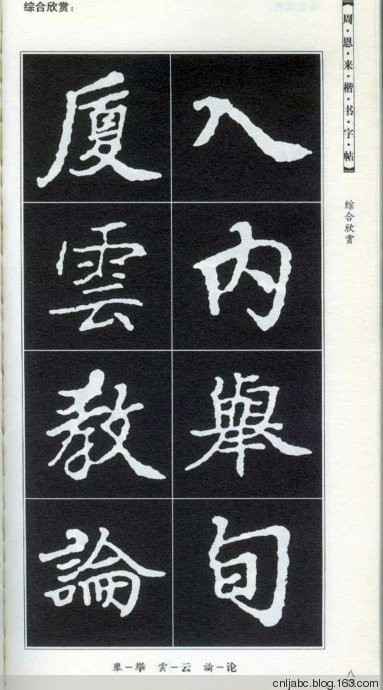 综合欣赏：
【周·恩·来·楷·书·字·帖】
综合欣赏
入内舉旬
厦雲教論
舉－举 雲－云 論－论
八
cnljabc.blog.163.com